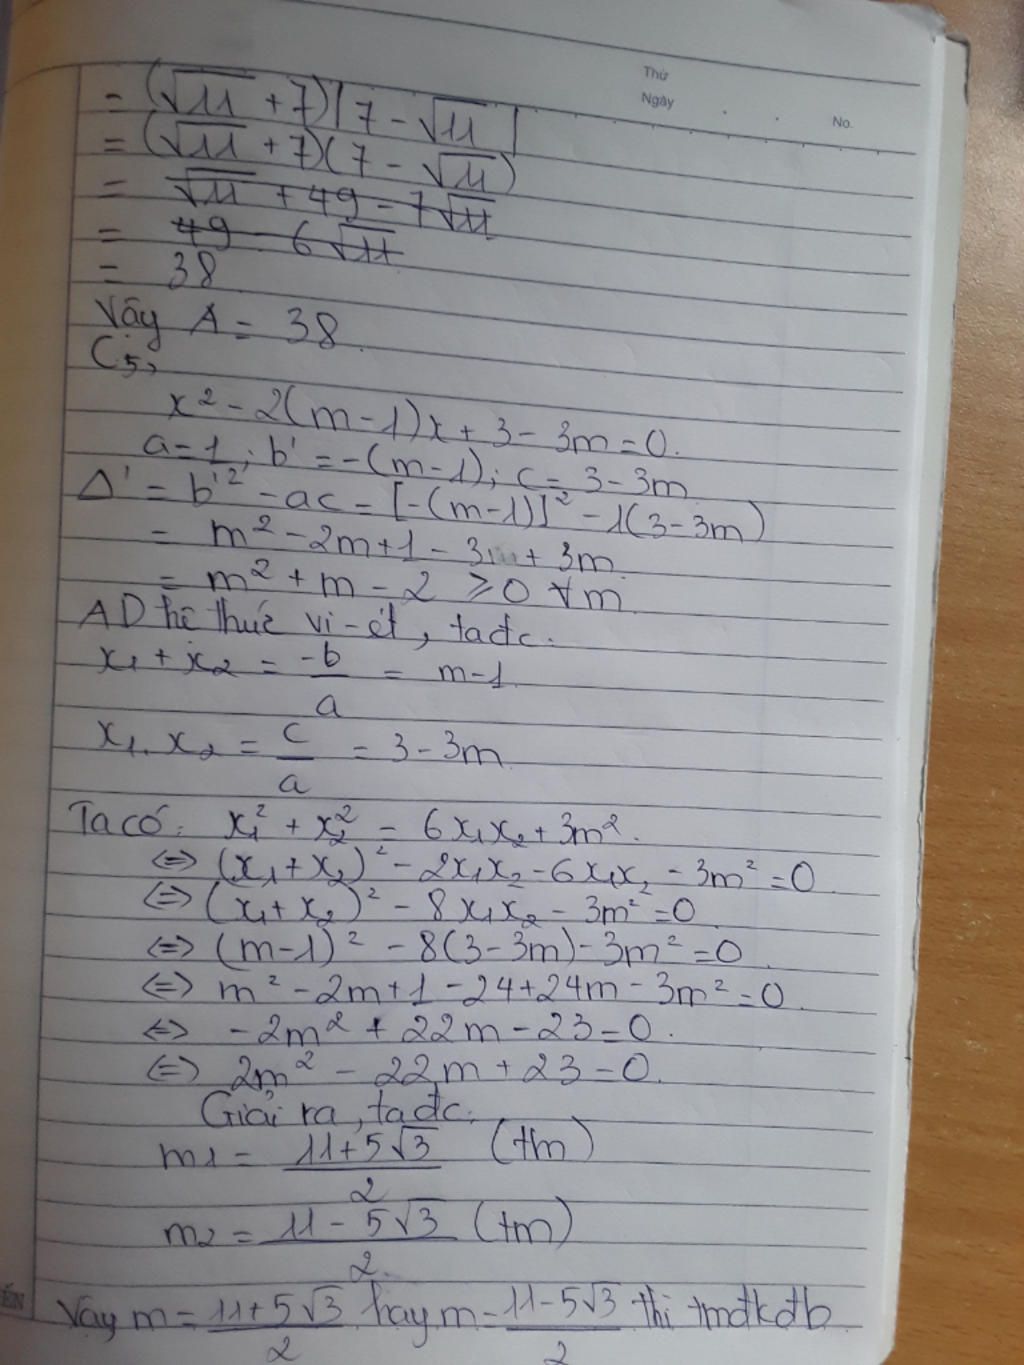 Thứ
Ngày
No.
= (√11 + 7)|7 - √11|
= (√11 + 7)(7 - √11)
= √11 + 49 - 7√11
= 49 - 6√11
= 38
Vậy A = 38.
C5,
x² - 2(m-1)x + 3 - 3m = 0.
a = 1; b' = -(m-1); c = 3 - 3m
Δ' = b'² - ac = [-(m-1)]² - 1(3-3m)
= m² - 2m + 1 - 3 + 3m.
= m² + m - 2 ≥ 0 ∀m
AD hê thức vi-ét, tađc.
x₁ + x₂ = -b/a = m-1.
x₁. x₂ = c/a = 3 - 3m
Ta có: x₁² + x₂² = 6x₁x₂ + 3m².
⇔ (x₁+x₂)² - 2x₁x₂ - 6x₁x₂ - 3m² = 0.
⇔ (x₁+x₂)² - 8x₁x₂ - 3m² = 0
⇔ (m-1)² - 8(3-3m) - 3m² = 0.
⇔ m² - 2m + 1 - 24 + 24m - 3m² = 0.
⇔ -2m² + 22m - 23 = 0.
⇔ 2m² - 22m + 23 = 0.
Giải ra, tađc:
m₁ = (11+5√3)/2 (tm)
m₂ = (11-5√3)/2 (tm)
Vậy m = (11+5√3)/2 hay m = (11-5√3)/2 thì tmđkđb